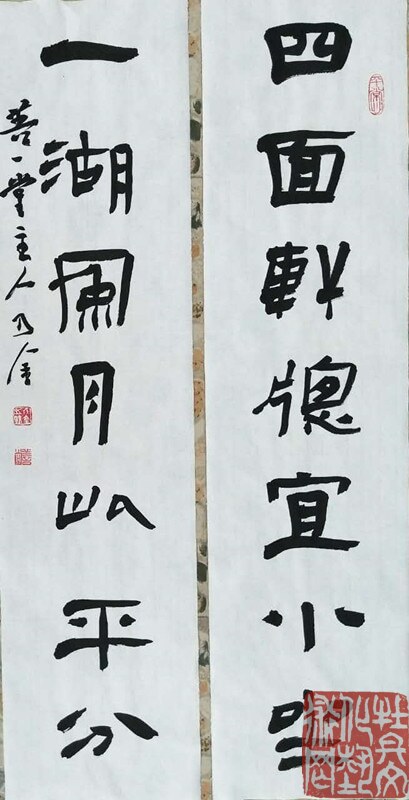 四面軒牕宜小坐
一湖風月此平分
一堂主人乃金